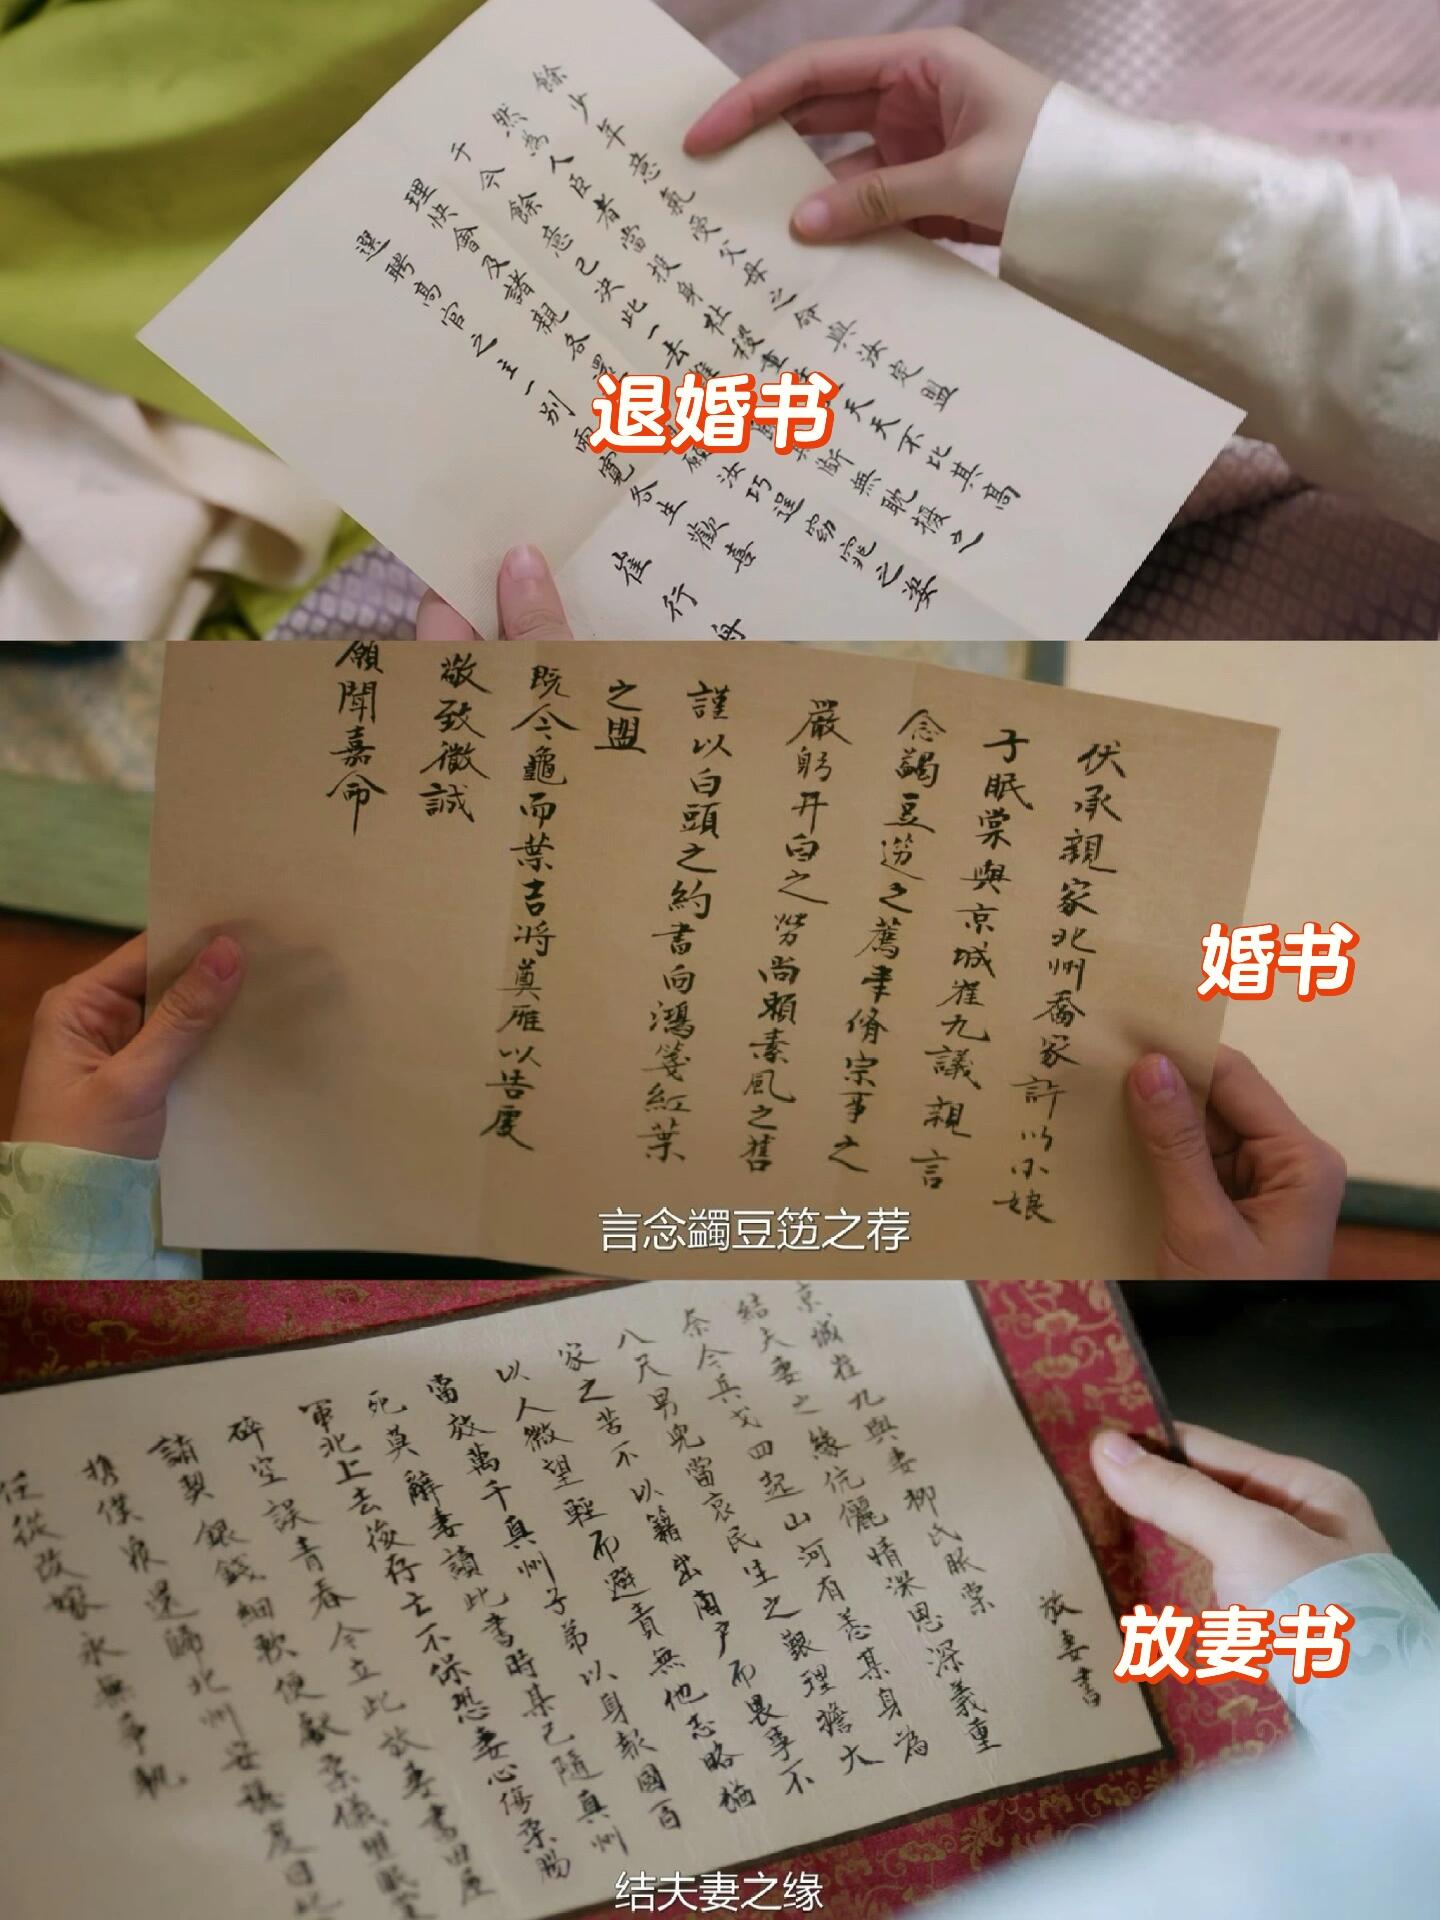 餘少年意氣受父母之命與汝定盟
然為人臣者當投身社稷重
天下不比其高
于今餘意己決此一去
斷無耽擱之
理快會及諸親各還
願汝巧逞窈窕之姿
選聘高官之主一別兩寬各生歡喜
崔行舟
退婚书
伏承親家北州喬家許以小娘
子眠棠與京城崔九議親言
念蠲豆笾之薦聿脩宗事之
嚴躬井臼之勞尚賴素風之舊
謹以白頭之約書向鴻箋紅葉
之盟
既令龜而葉吉將奠雁以告虔
敬致微誠
願聞嘉命
婚书
言念蠲豆笾之荐
放妻書
京城崔九與妻柳氏眠棠
結夫妻之緣伉儷情深恩深義重
奈今兵戈四起山河有恙某身為
八尺男兒當哀民生之艱理擔大
家之苦不以籍出商戶而畏事不
以人微望輕而避責無他志略猶
當效萬千真州子弟以身報國百
死莫辭妻讀此書時某已隨真州
軍北上去後存亡不保恐妻心傷柔腸
碎空誤青春今立此放妻書田產
請契銀錢細軟便獻柔儀望眠棠
攜僕痕還歸北州安穩度日此
任從改嫁永無爭執
放妻书
结夫妻之缘